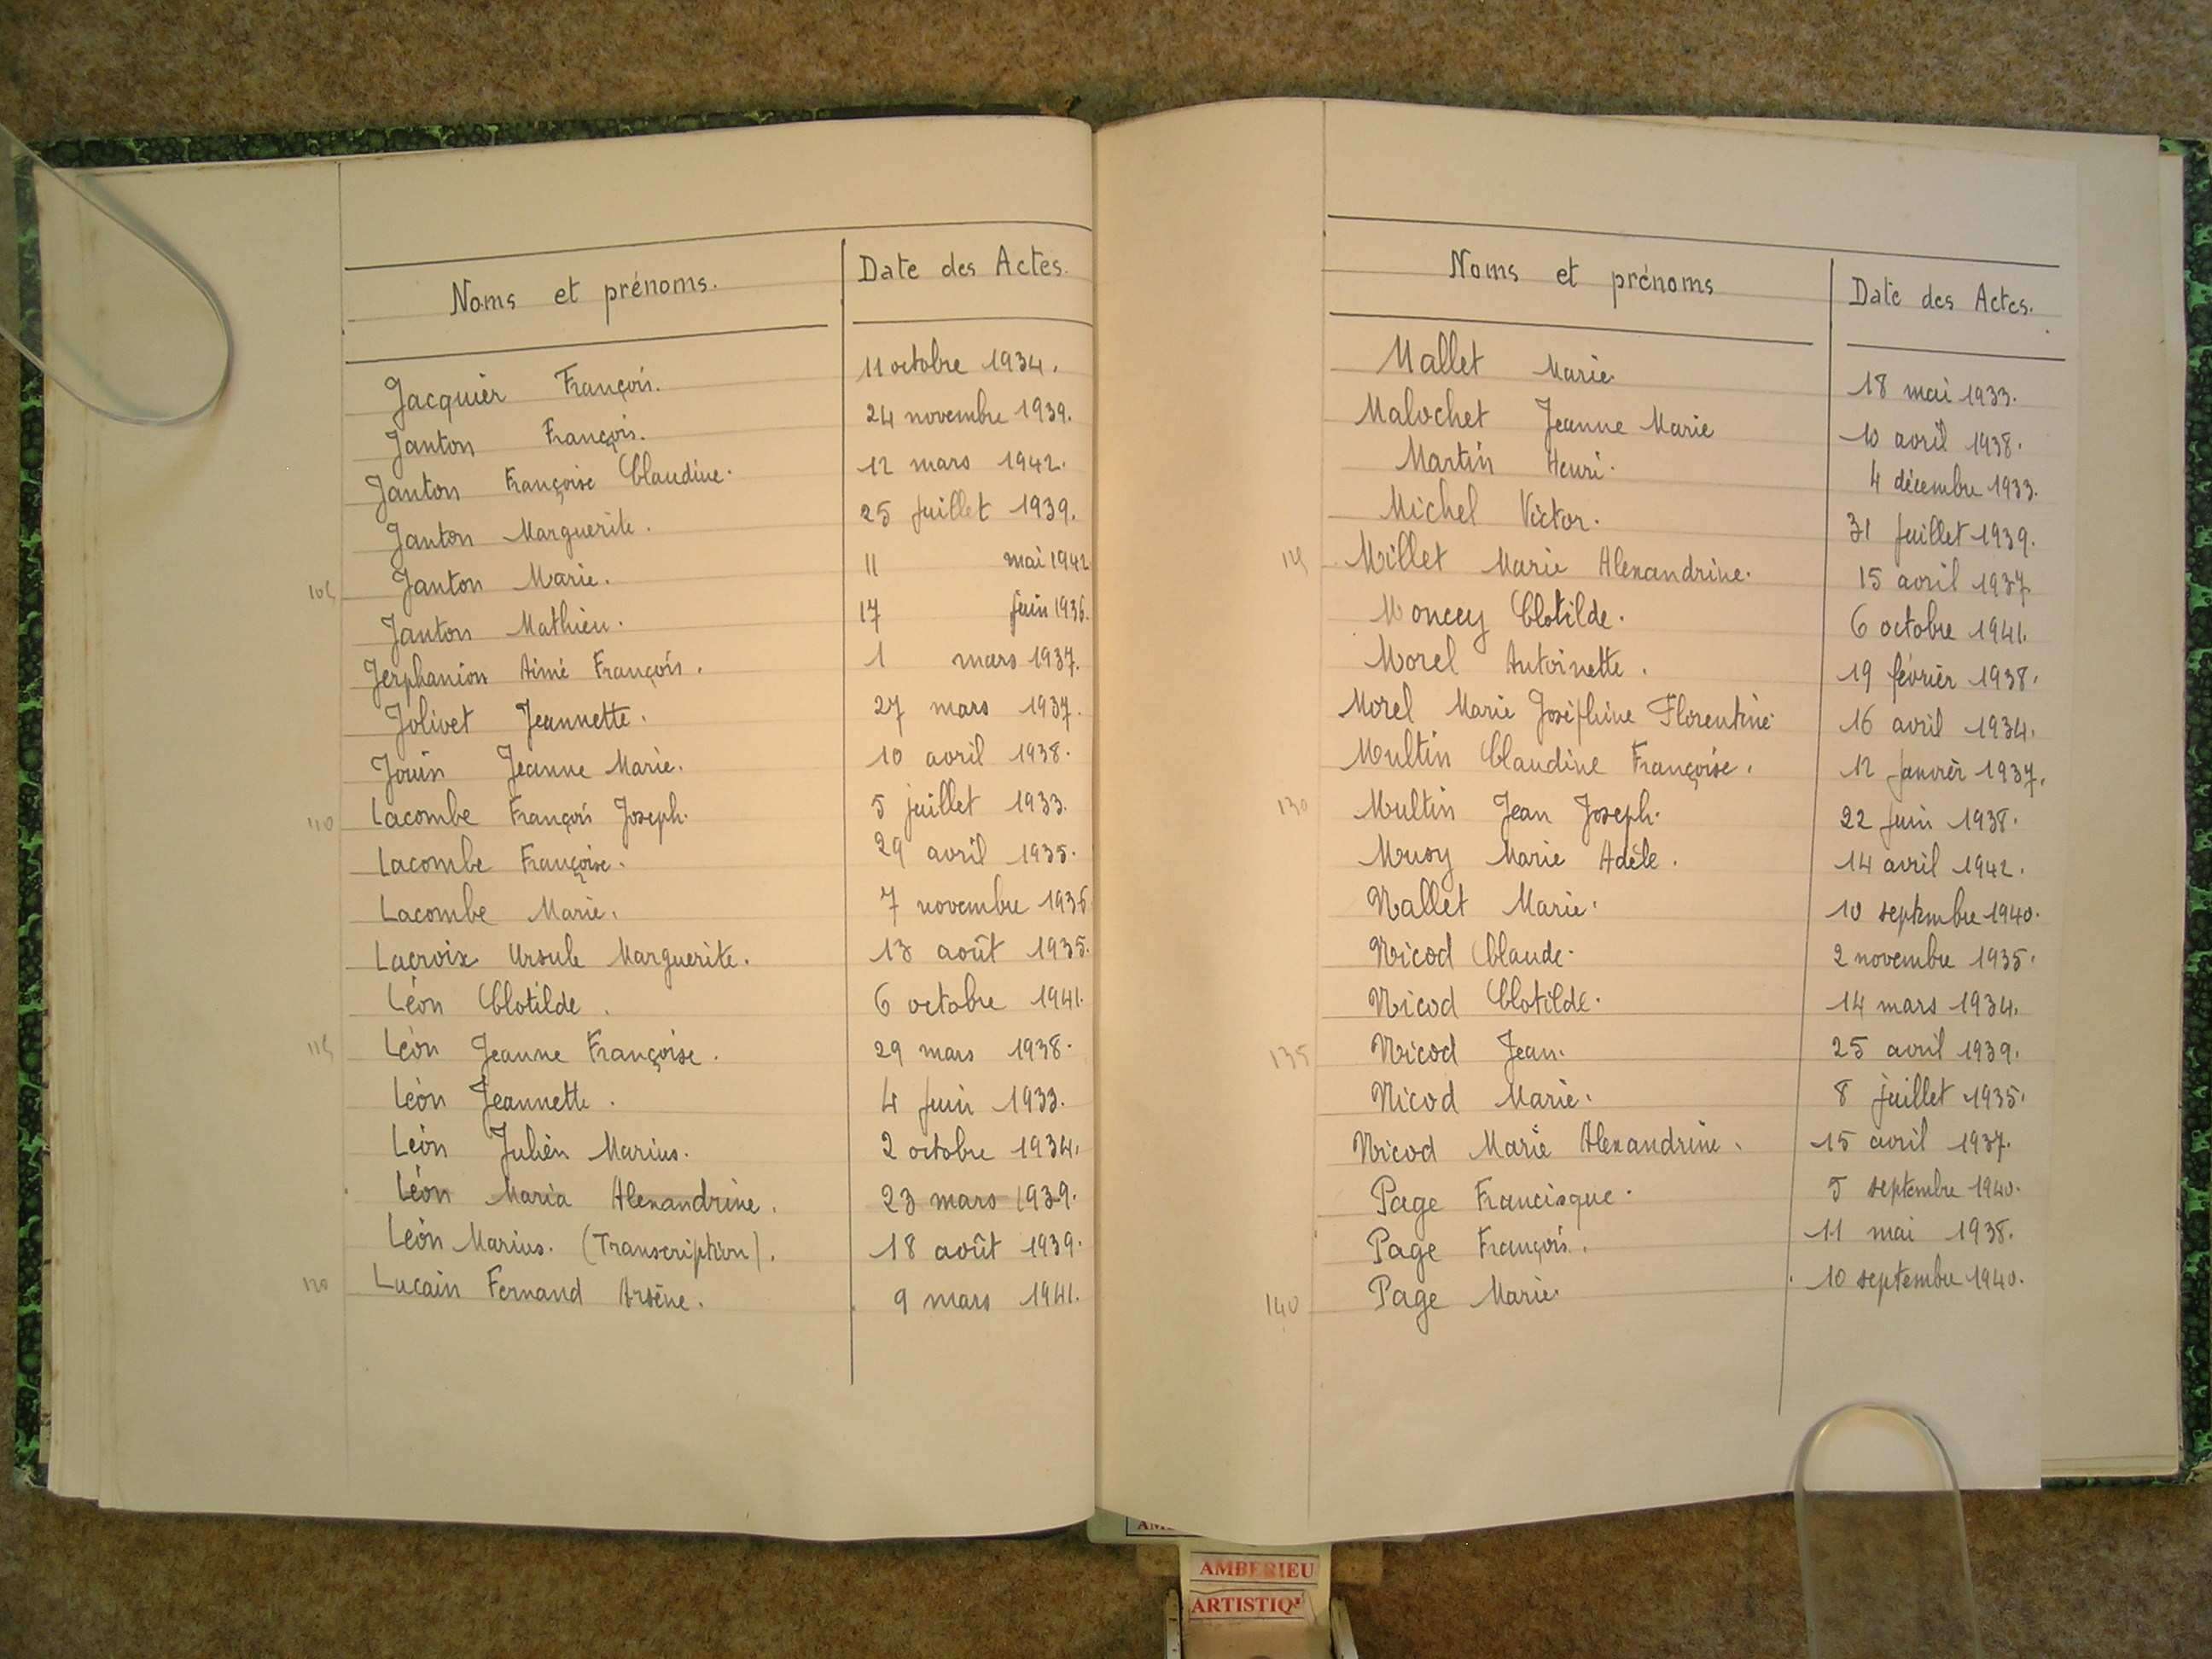 Noms et prénoms. Date des Actes.
Jacquier François. 11 octobre 1934.
Janton François. 24 novembre 1939.
Janton Françoise Claudine. 12 mars 1942.
Janton Marguerite. 25 juillet 1939.
105 Janton Marie. 11 mai 1942
Janton Mathieu. 17 juin 1936.
Jerphanion Aimé François. 1 mars 1937.
Jolivet Jeannette. 27 mars 1937.
Jouin Jeanne Marie. 10 avril 1938.
110 Lacombe François Joseph. 5 juillet 1933.
Lacombe Françoise. 29 avril 1935.
Lacombe Marie. 7 novembre 1936
Lacroix Ursule Marguerite. 13 août 1935.
Léon Clotilde. 6 octobre 1941.
115 Léon Jeanne Françoise. 29 mars 1938.
Léon Jeannette. 4 juin 1933.
Léon Julien Marius. 2 octobre 1934.
Léon Maria Alexandrine. 23 mars 1939.
Léon Marius. (Transcription). 18 août 1939.
120 Lucain Fernand Arsène. 9 mars 1941.
Noms et prénoms Date des Actes.
Mallet Marie. 18 mai 1933.
Malochet Jeanne Marie 10 avril 1938.
Martin Henri. 4 décembre 1933.
Michel Victor. 31 juillet 1939.
125 Millet Marie Alexandrine. 15 avril 1937
Moncey Clotilde. 6 octobre 1941.
Morel Antoinette. 19 février 1938.
Morel Marie Joséphine Florentine 16 avril 1934.
Multin Claudine Françoise. 12 janvier 1937.
130 Multin Jean Joseph. 22 juin 1938.
Musy Marie Adèle. 14 avril 1942.
Nallet Marie. 10 septembre 1940.
Nicod Claude. 2 novembre 1935.
Nicod Clotilde. 14 mars 1934.
135 Nicod Jean. 25 avril 1939.
Nicod Marie. 8 juillet 1935.
Nicod Marie Alexandrine. 15 avril 1937.
Page Francisque. 5 septembre 1940.
Page François. 11 mai 1938.
140 Page Marie. 10 septembre 1940.
AMBERIEU
ARTISTIQ